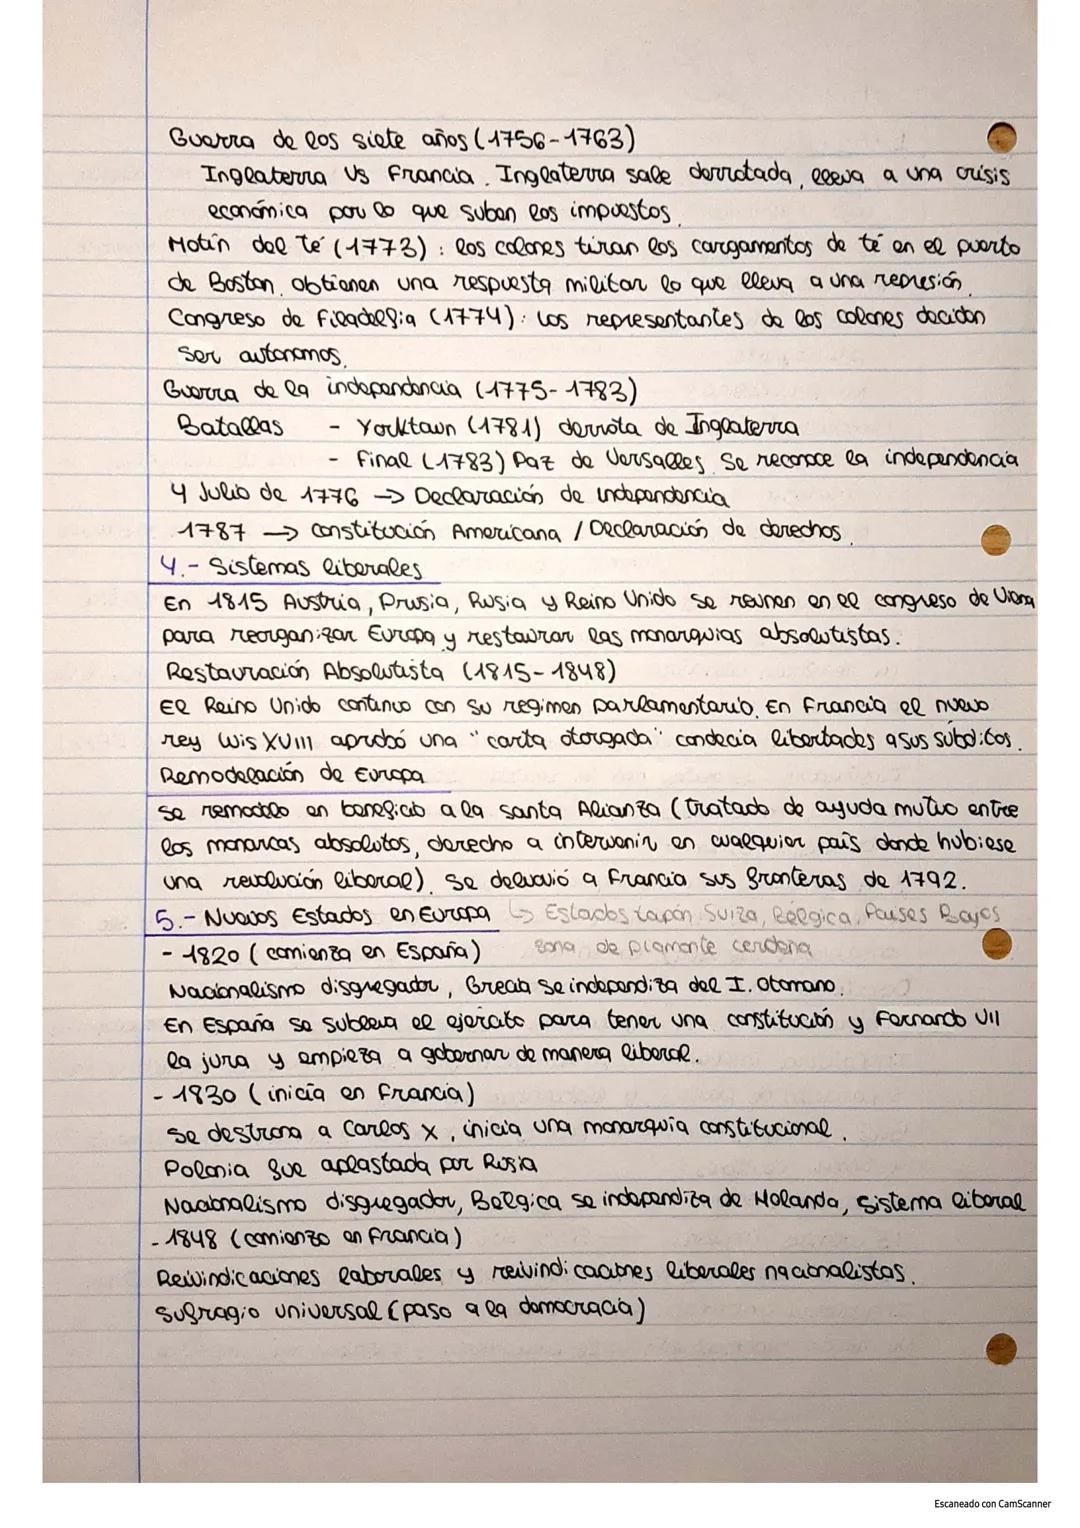 Guerra de los siete años (1756-1763)
Inglaterra Vs Francia. Inglaterra sale derrotada, lleva a una crisis
económica por lo que suben los impuestos.
Motín del té (1773): los colones tiran los cargamentos de té en el puerto
de Boston. obtienen una respuesta militar lo que lleva a una represión.
Congreso de Filadelfia (1774): Los representantes de los colones deciden
ser autonomos.
Guerra de la independencia (1775-1783)
Batallas - Yorktawn (1781) derrota de Inglaterra
- Final (1783) Paz de Versalles. Se reconoce la independencia
4 Julio de 1776 → Declaración de independencia
1787 → constitución Americana / Declaración de derechos.
4.- Sistemas liberales
En 1815 Austria, Prusia, Rusia y Reino Unido se reunen en el congreso de Viena
para reorganizar Europa y restaurar las monarquias absolutistas.
Restauración Absolutista (1815-1848)
El Reino Unido continuo con su regimen parlamentario. En Francia el nuevo
rey Luis XVIII aprobó una "carta otorgada" condecia libertades a sus súbditos.
Remodelación de Europa
Se remodelo en beneficio a la santa Alianza (tratado de ayuda mutuo entre
los monarcas absolutos, derecho a intervenir en cualquier país donde hubiese
una revolución liberal). Se delvovió a Francia sus fronteras de 1792.
5.- Nuevos Estados en Europa ↳ Estados tapón Suiza, Bélgica, Paises Bajos
zona de piamonte cerdena
- 1820 (comienza en España)
Nacionalismo disgregador, Grecia se independiza del I. Otomano.
En España se subleva el ejercito para tener una constitución y Fernando VII
la jura y empieza a gobernar de manera liberal.
- 1830 (inicía en Francia)
Se destrona a Carlos X, inicia una monarquía constitucional.
Polonia fue aplastada por Rusia
Nacionalismo disgregador, Belgica se independiza de Holanda, sistema liberal
- 1848 (comienzo en Francia)
Reivindicaciones laborales y reivindicaciones liberales nacionalistas.
Sufragio universal (paso a la democracia)
Escaneado con CamScanner